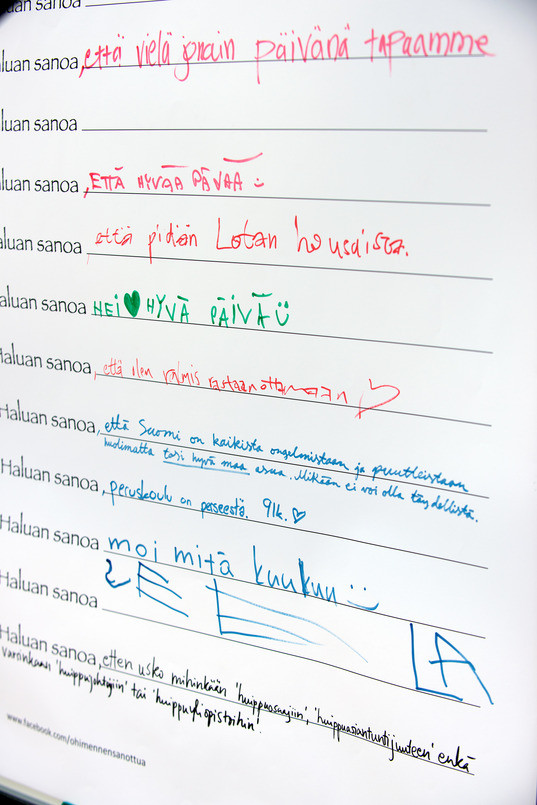 luan sanoa
luan sanoa, että vielä jonain päivänä tapaamme
luan sanoa
luan sanoa, ETTÄ HYVÄÄ PÄVÄÄ
aluan sanoa että pidän Lotan housuista.
aluan sanoa HEI ♥ HYVÄ PÄIVÄ Ü
Haluan sanoa, että olen valmis vastaanottamaan
Haluan sanoa, että Suomi on kaikista ongelmistaan ja puutteistaan
huolimatta tosi hyvä maa asua. Mikään ei voi olla täydellistä.
Haluan sanoa, peruskoulu on perseestä. 9lk. ♡
Haluan sanoa moi mitä kuukuu :)
Haluan sanoa
LA
Haluan sanoa, etten usko mihinkään 'huippuosaajiin', 'huippuasiantuntijuuteen' enkä
varsinkaan 'huippujohtajiin' tai 'huippuyliopistoihin'.
www.facebook.com/ohimennensanottua